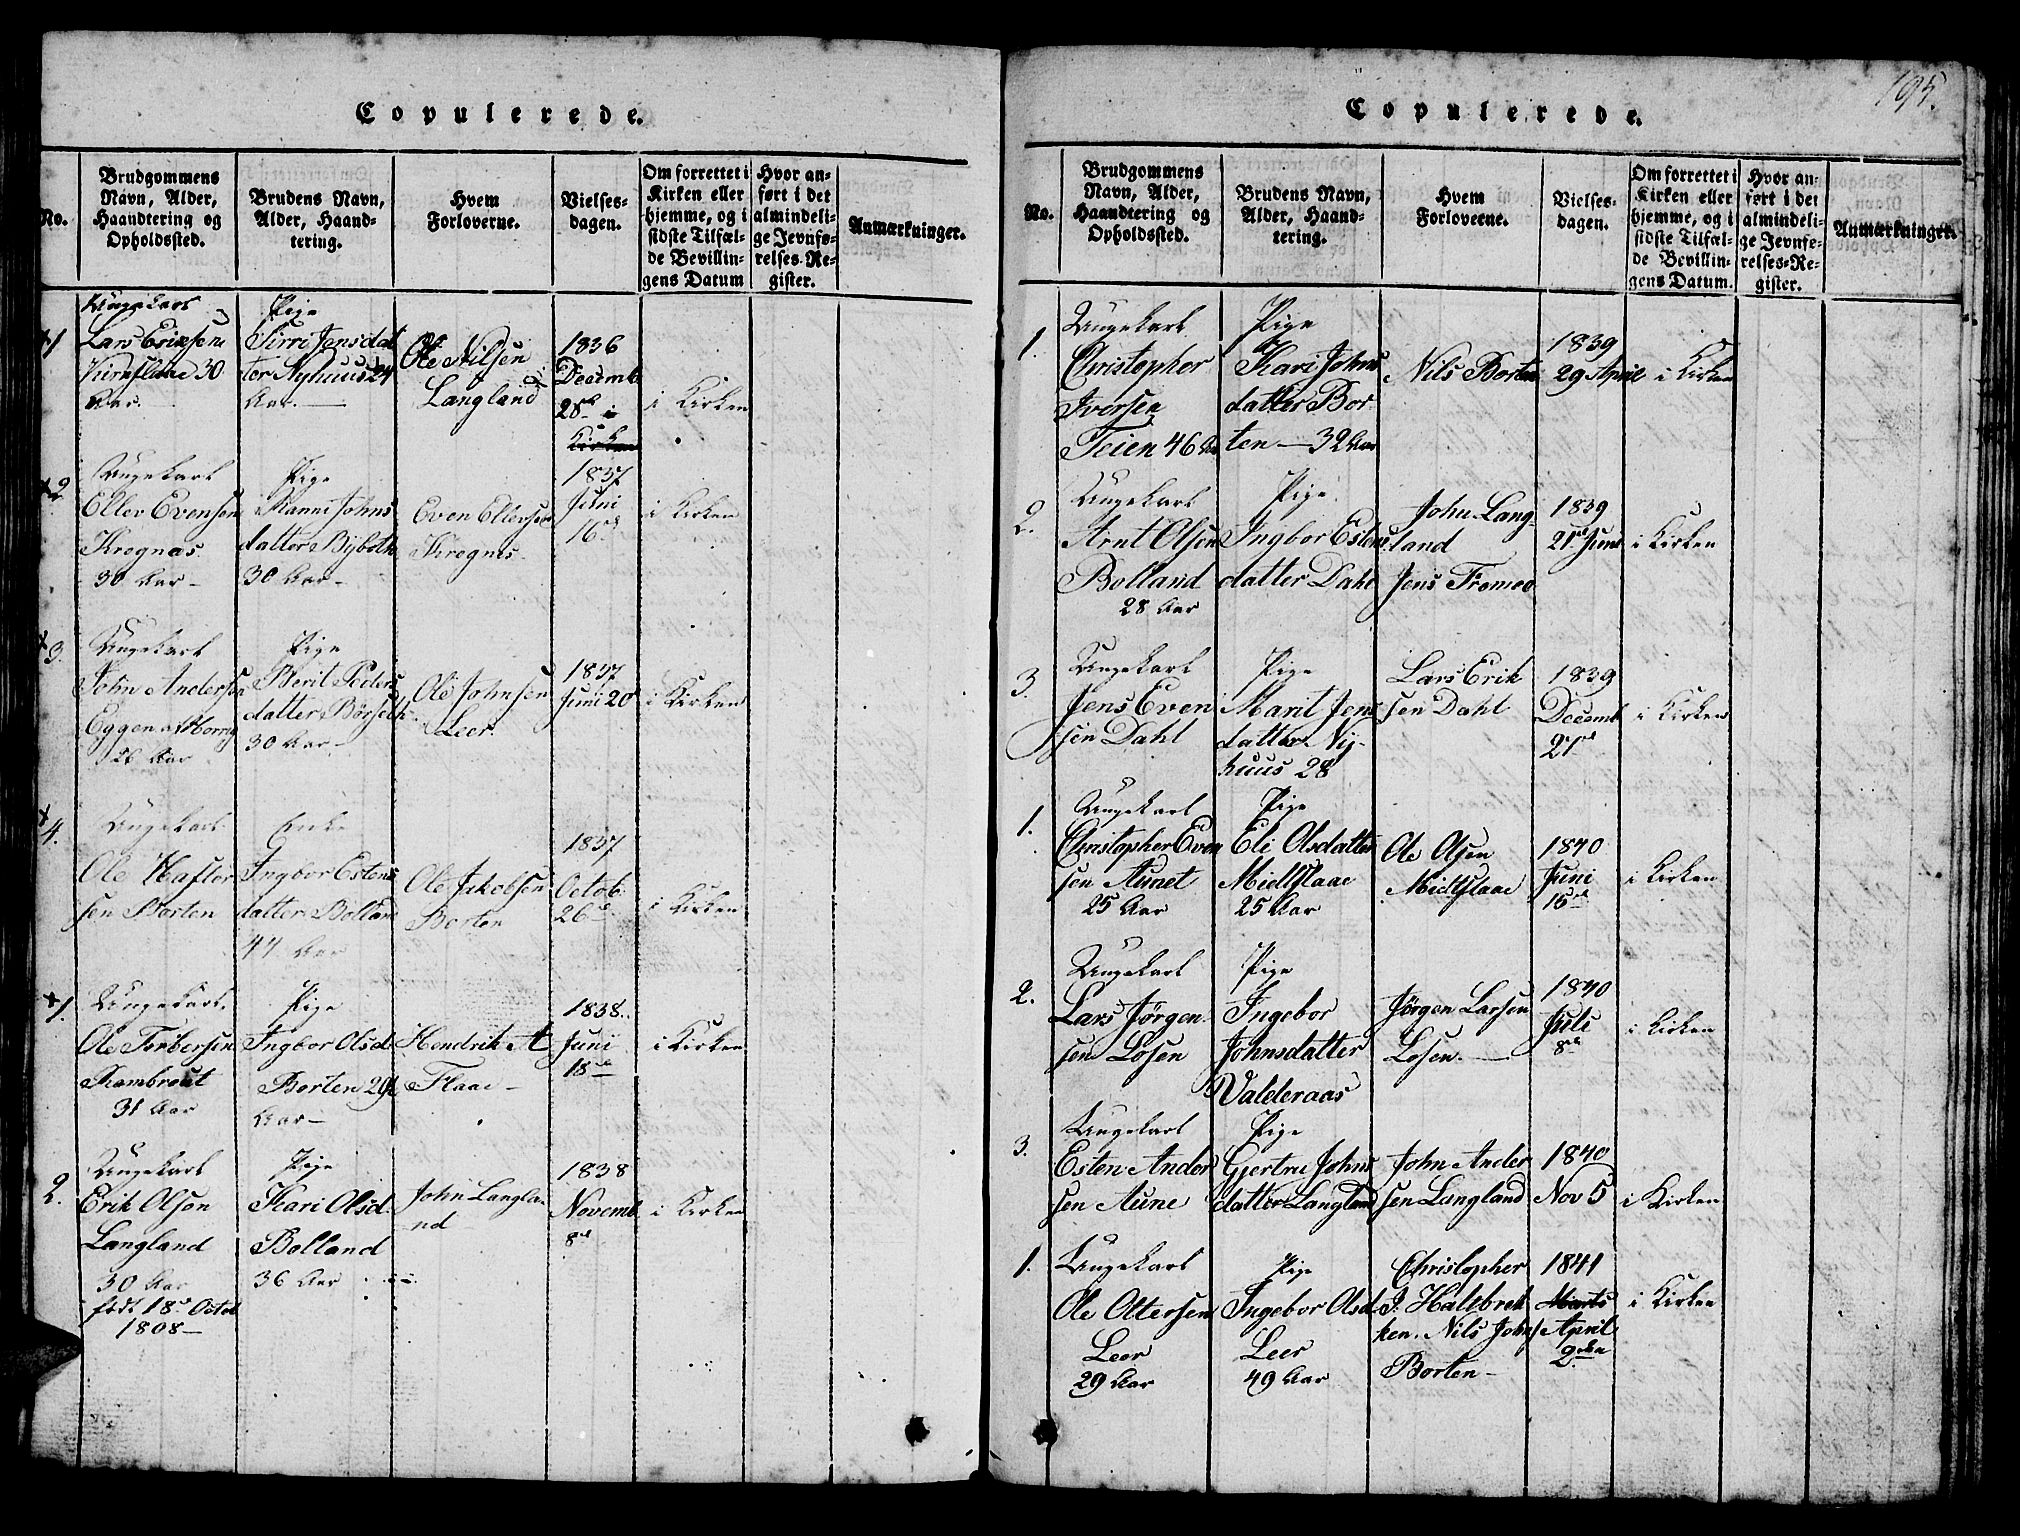 Copulerede.
No.
Brudgommens
Navn, Alder,
Haandtering og
Opholdssted.
Brudens Navn,
Alder, Haand-
tering.
Hvem
Forloverne.
Vielses-
dagen.
Om forrettet i
Kirken eller
hjemme, og i
sidste Tilfæl-
de Bevillin-
gens Datum
Hvor an-
ført i det
almindeli-
ge Jevnfø-
relses-Re-
gister.
Anmærkninger.
+1
Ungekarl
Lars Eriksen
30
Aar.
Pige
Sirri Jensdat
ter Nyhuus 24
Aar.
Ole Nilsen
Langland
1836
Decemb
28de i
Kirken
i Kirken
+2
Ungekarl
Ellev Evensen
Krognæs
30 Aar
Pige
Ranni Johns
datter Bÿboth
30 Aar
Even Ellevsen
Krognes
1837
Juni
16de
i Kirken
+3.
Ungekarl
John Andersen
Eggen af Horrg
26 Aar
Pige
Berit Peders
datter Børseth
30 Aar
Ole Johnsen
Leer.
1837
Juni 20
i Kirken
+4.
Ungekarl
Ole Haftor
sen Borten
Enke
Ingbor Estens
datter Bolland
44 Aar
Ole Jakobsen
Borten
1837
Octob.
26de
i Kirken
+1.
Ungekarl.
Ole Torbersen
Rambrøut
31 Aar
Pige
Ingbor Olsd.
Borten 29¼
Aar
Hendrik A
Flaae
1838.
Juni
18de
i Kirken
2.
Ungekarl
Erik Olsen
Langland
30 Aar
født 18de Octob
1808
Pige
Kari Olsd.
Bolland
36 Aar
John Langla
nd
1838
Novemb.
8de
i Kirken
195.
Copulerede.
No.
Brudgommens
Navn, Alder,
Haandtering og
Opholdssted.
Brudens Navn,
Alder, Haand-
tering.
Hvem
Forloveene.
Vielses-
dagen.
Om forrettet i
Kirken eller
hjemme, og i
sidste Tilfæl-
de Bevillin-
gens Datum.
Hvor an-
ført i det
almindeli-
ge Jevnfe-
relses-Re-
gister.
Anmærkninger.
1.
Ungekarl
Christopher
Iversen
Teien 46 Aar
Pige
Kari Johns
datter Bor
ten — 32 Aar
Nils Borten
1839
29 April
i Kirken
2.
Ungekarl
Arnt Olsen
Bolland
28 Aar
Pige.
Ingbor Estens
datter Dahl
John Lang-
land
Jens Fremoe
1839
21de Juni
i Kirken
3.
Ungekarl
Jens Even
sen Dahl
Pige
Marit Jens
datter Nÿ-
huus 28
Lars Erik
sen Dahl
1839
Decemb
27de
i Kirken
1.
Ungekarl
Christopher Even
sen Aunet
25 Aar
Pige
Eli Olsdatter
Midtflaae
25 Aar
Ole Olsen
Midtflaae
1840
Juni
15de
i Kirken
2.
Ungekarl
Lars Jørgen
sen Losen
Pige
Ingebor
Johnsdatter
Valderaas
Jørgen Larsen
Losen.
1840
Juli
8de
i Kirken
3.
Ungekarl
Esten Ander
sen Aune
Pige
Gjertru Johns
datter Langland
John Ander
sen Langland
1840
Nov 5
i Kirken
1.
Ungekarl
Ole Ottersen
Leer
29 Aar
Pige
Ingebor Olsd.
Leer
49 Aar
Christopher
J. Haltbrek
ken. Nils Johns
Borten
1841
Marts
April
2den
i Kirken